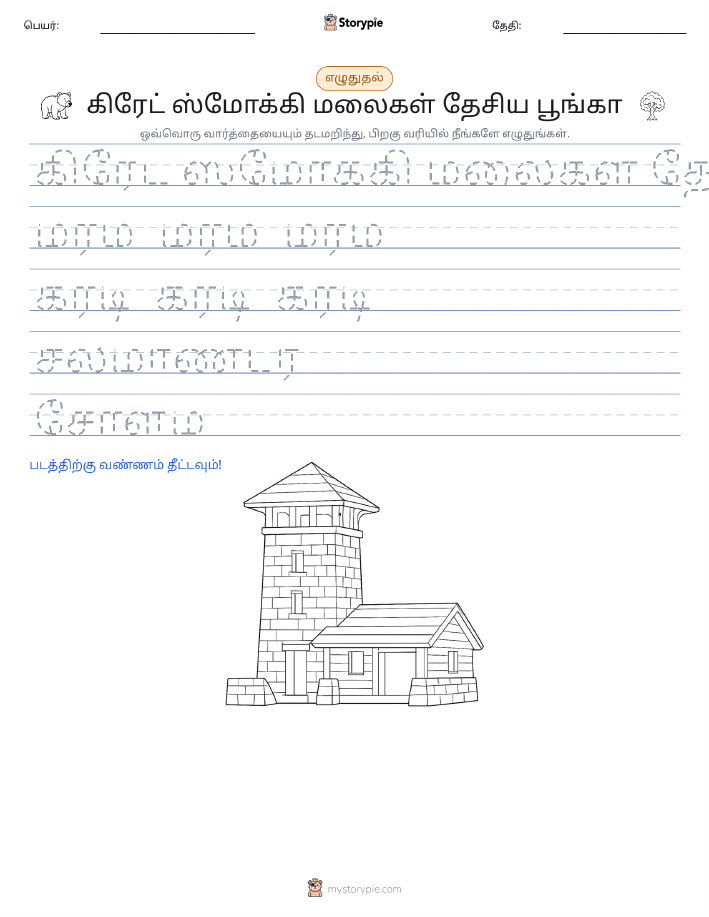 பெயர்:
Storypie
தேதி:
எழுதுதல்
கிரேட் ஸ்மோக்கி மலைகள் தேசிய பூங்கா
ஒவ்வொரு வார்த்தையையும் தடமறிந்து, பிறகு வரியில் நீங்களே எழுதுங்கள்.
கிரேட ஸமோககி மலைகள தே
மரம மரம மரம
கரடி கரடி கரடி
சலமாணடர
சோளம
படத்திற்கு வண்ணம் தீட்டவும்!
mystorypie.com